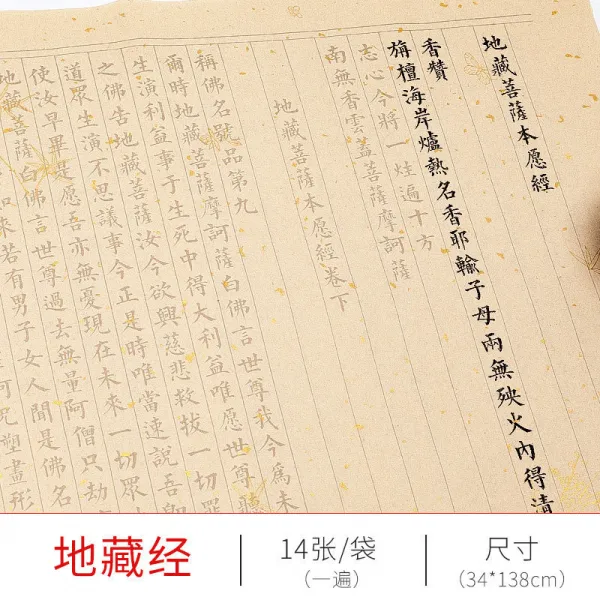 地藏菩薩本愿經
香贊
旃檀海岸爐熱名香耶輸子母兩無殃火內得清
志心今將一炷遍十方
南無香雲蓋菩薩摩訶薩
地藏菩薩本愿經卷下
稱佛名號品第九
爾時地藏菩薩摩訶薩白佛言世尊我今為未
生演利益事于生死中得大利益唯愿世尊聽
之佛告地藏菩薩汝今欲興慈悲救拔一切罪
道眾生演不思議事今正是時唯當速說吾即
使汝早畢是愿吾亦無憂現在未來一切眾
地藏菩薩白佛言世尊過去無量阿僧只劫
如來若有男子女人聞是佛名
塑畫形
地藏经
14张/袋
(一遍)
尺寸
(34*138cm)